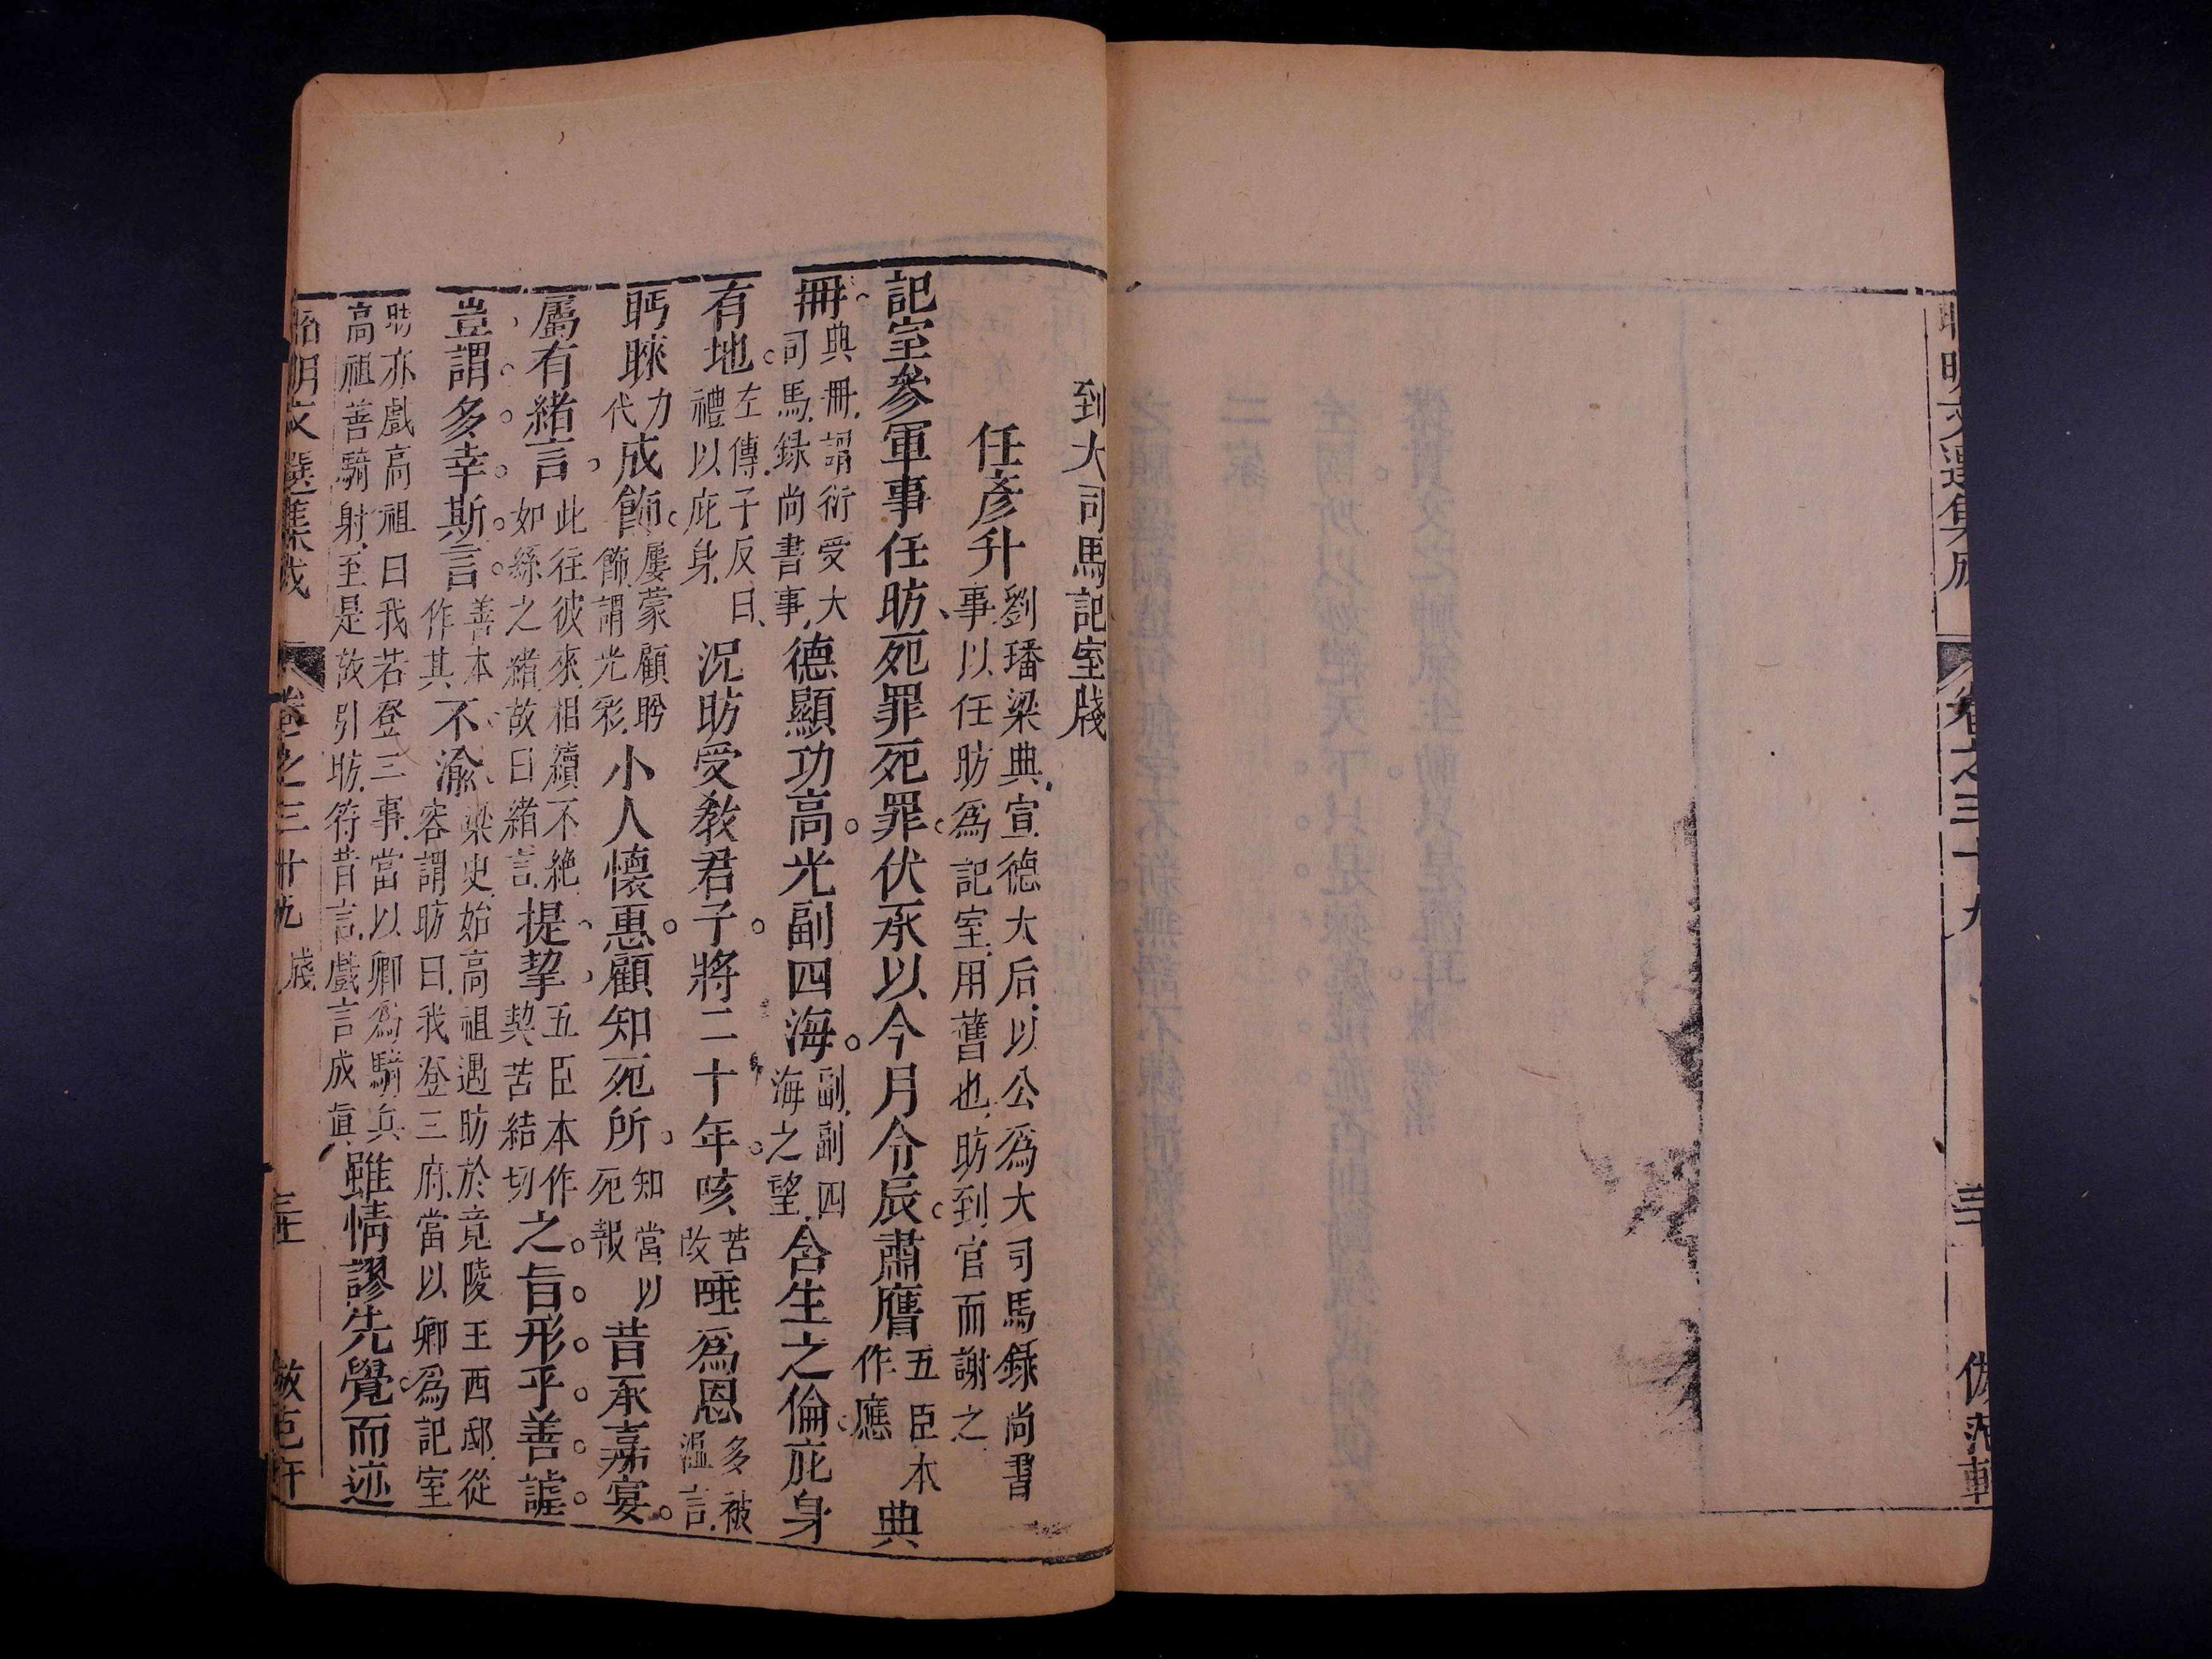 昭明文選集成 卷之三十九 三十 倣范軒
到大司馬記室牋
任彥升 劉璠梁典宣德大后以公為大司馬錄尚書事以任昉為記室用舊也昉到官而謝之
記室參軍事任昉死罪死罪伏承以今月令辰肅膺五臣本作應典
冊典冊謂衍受大司馬錄尚書事德顯功高光副四海副副四海之望含生之倫庇身
有地左傳子反曰禮以庇身況昉受教君子將二十年咳苦改唾為恩多被溫言
眄睞力代成飾屢蒙顧眄飾謂光彩小人懷惠顧知死所知當以死報昔承嘉宴
屬有緒言此往彼來相續不絕如絲之緒故曰緒言提挈五臣本作契苦結切之旨形乎善謔
豈謂多幸斯言善本作其不渝梁史始高祖遇昉於竟陵王西邸從容謂昉曰我登三府當以卿為記室
昉亦戲高祖曰我若登三事當以卿為騎兵高祖善騎射至是故引昉符昔言戲言成真雖情謬先覺而迹
昭明文選集成 卷之三十九 牋 三十 倣范軒